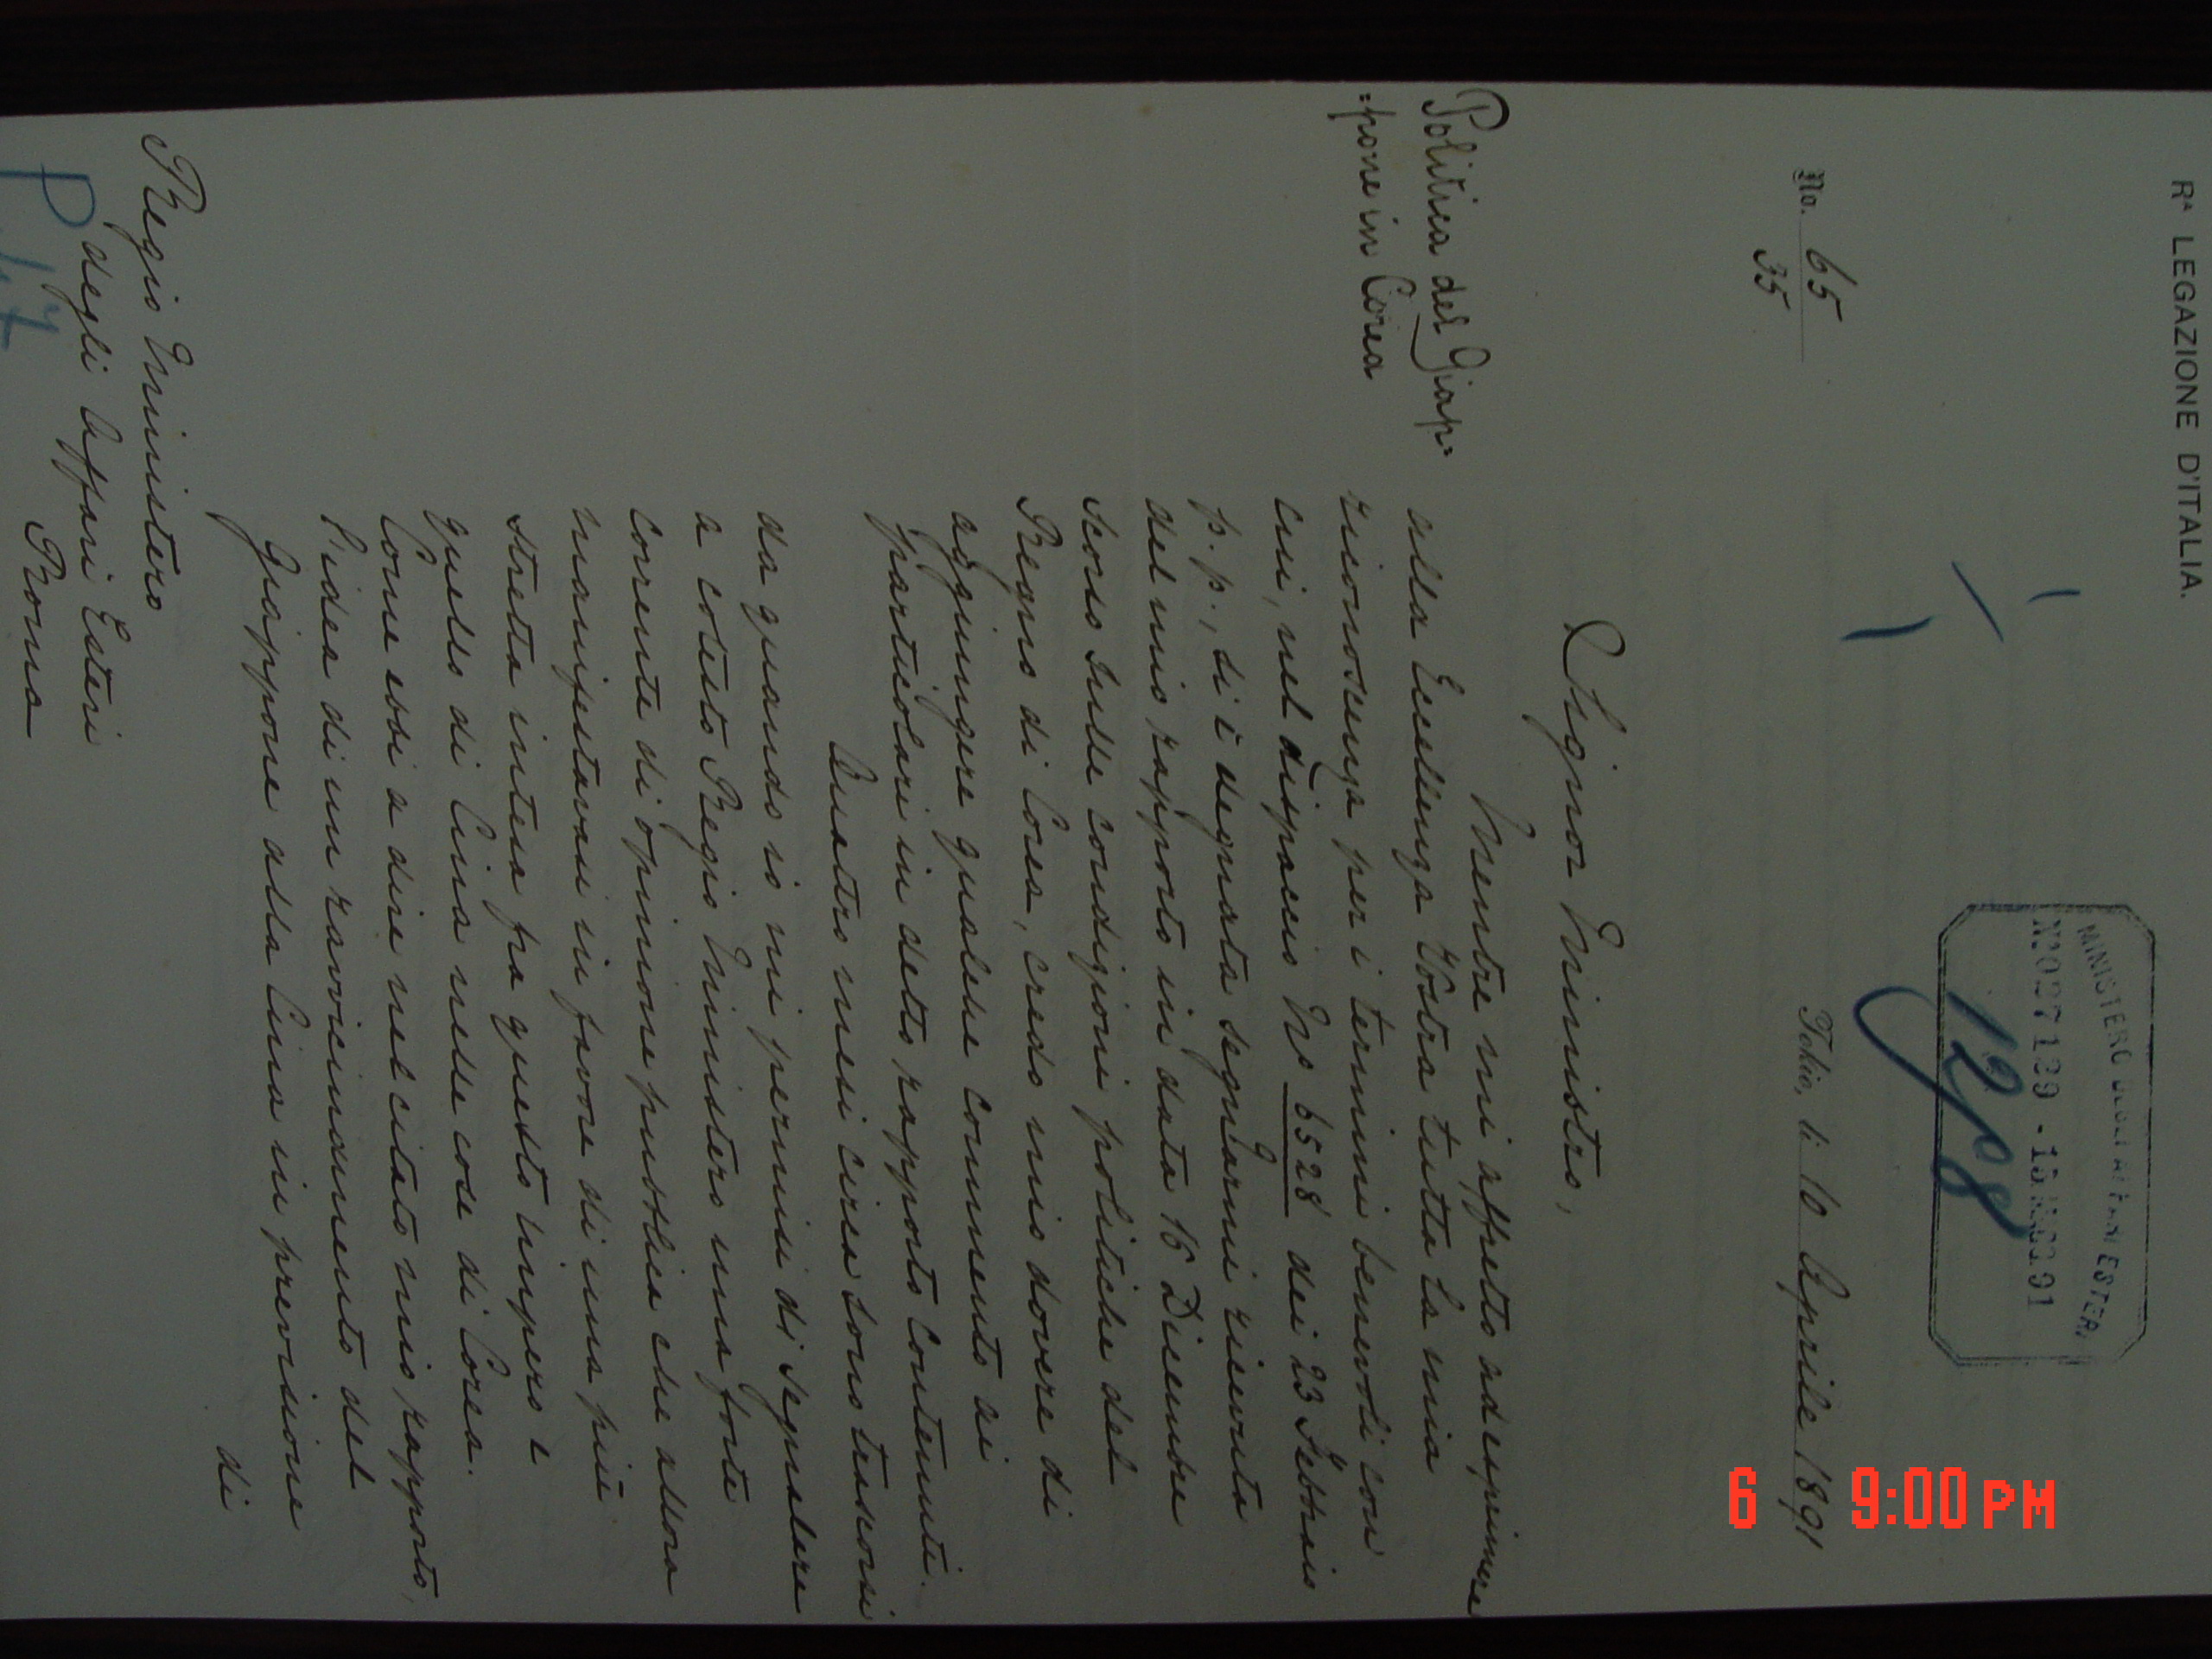 Rª LEGAZIONE D'ITALIA.
MINISTERO DEGLI AFFARI ESTERI
1298
No. 65
35
Tokio, li 10 Aprile 1891
Signor Ministro,
Politica del Giap=
=pone in Corea
Mentre mi affretto ad esprimere
alla Eccellenza Vostra tutta la mia
riconoscenza per i termini benevoli con
cui, nel dispaccio No 6528 dei 23 Febbraio
p. p., si è degnata segnarmi ricevuta
del mio rapporto in data 16 Dicembre
scorso sulle condizioni politiche del
Regno di Corea, credo mio dovere di
aggiungere qualche commento ai
particolari in detto rapporto contenuti.
Quattro mesi circa sono trascorsi
da quando io mi permisi di segnalare
a cotesto Regio Ministero una forte
corrente di opinione pubblica che allora
manifestavasi in favore di una più
stretta intesa fra questo impero e
quello di Cina nelle cose di Corea.
Come ebbi a dire nel citato mio rapporto,
l'idea di un ravvicinamento del
Giappone alla Cina in previsione
di
Regio Ministero
degli Affari Esteri
Roma
6 9:00 PM